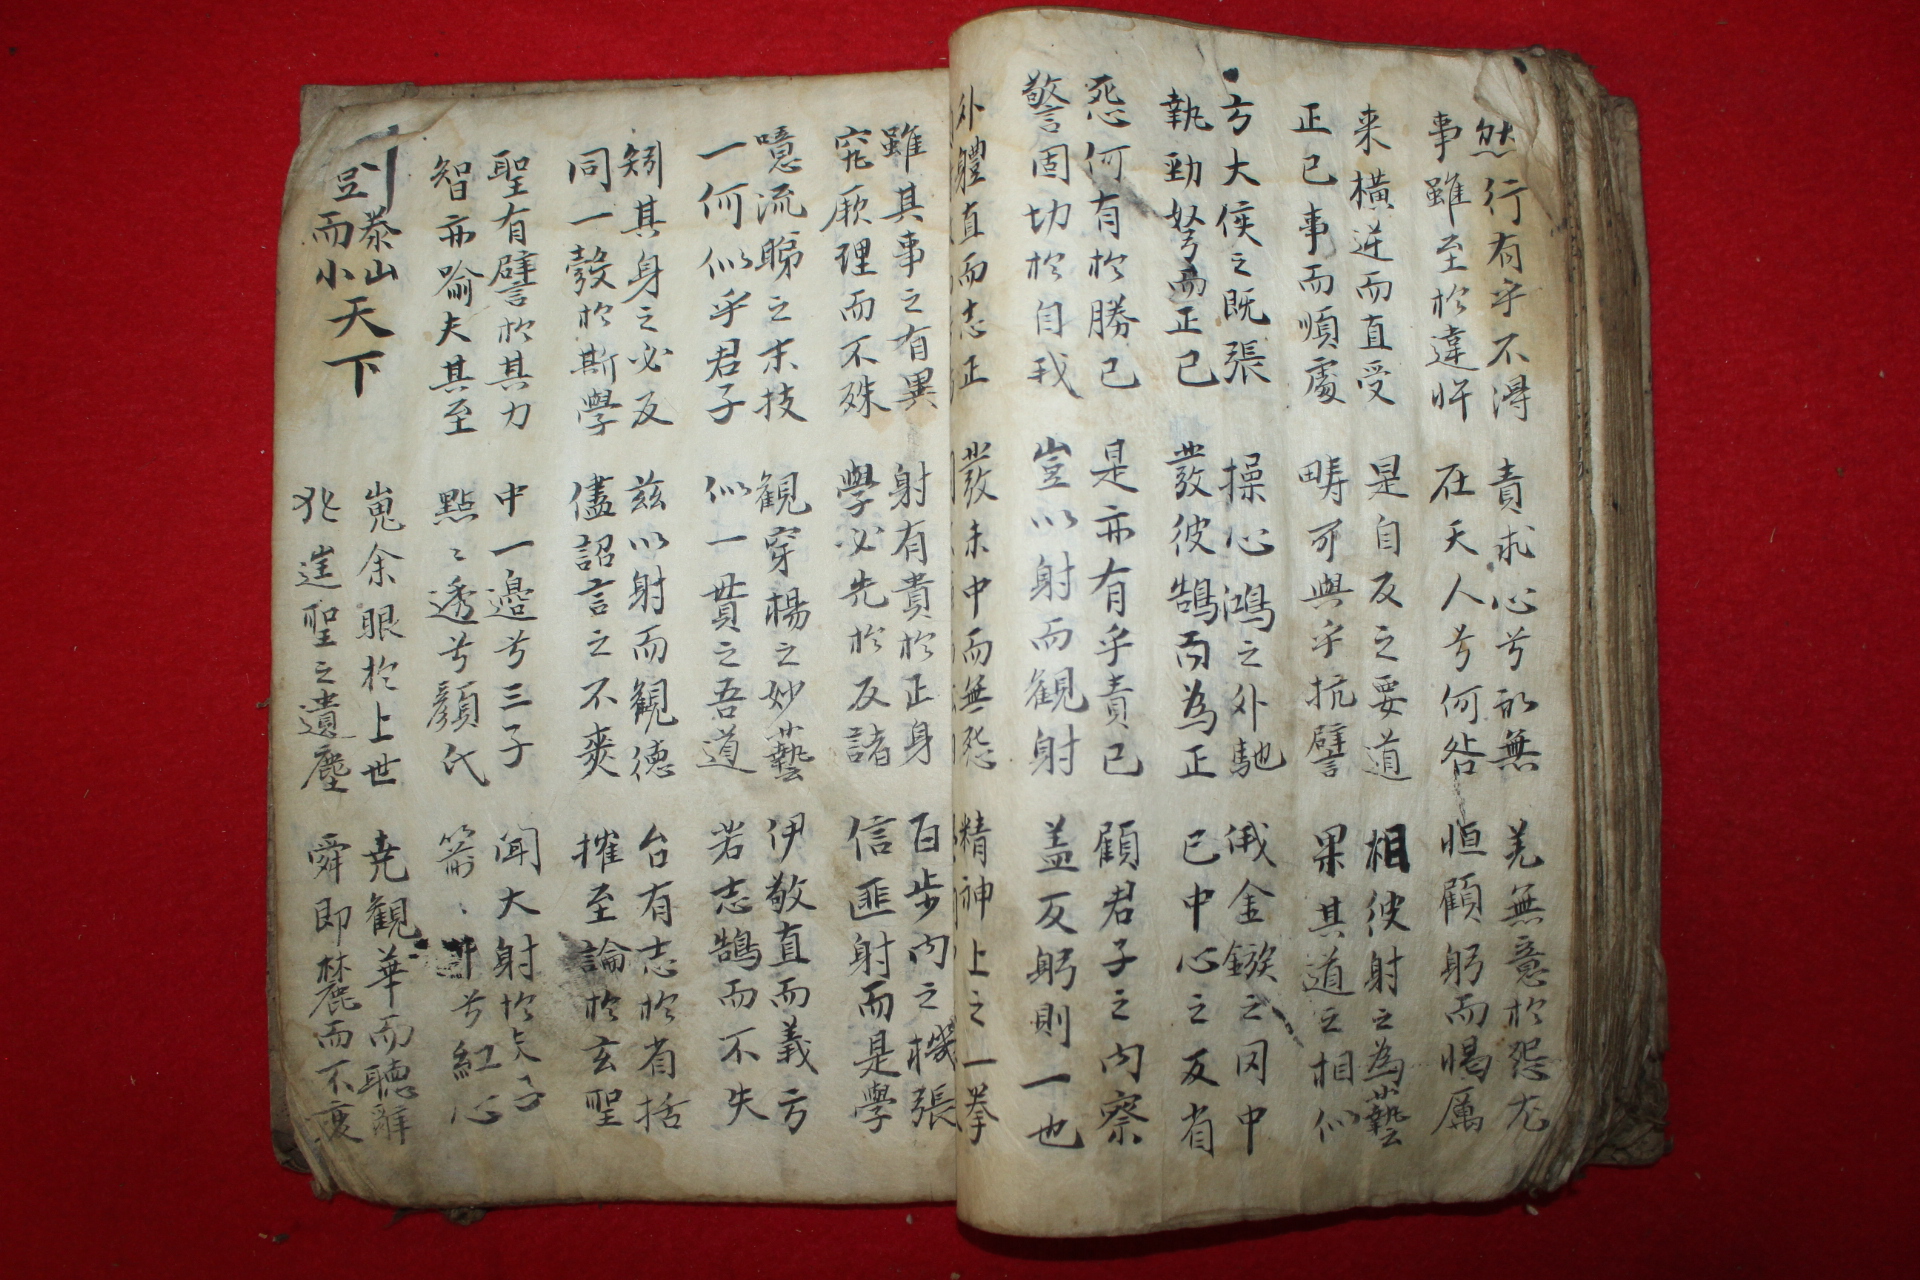 然行有乎不得 責求心兮 無 羌無意於怨尤
事雖至於違忤 在天人兮何咎 恒顧躬而惕厲
来橫逆而直受 是自反之要道 相彼射之為藝
正已事而順處 疇可與乎抗譬 果其道之相似
方大侯之既張 操心鴻之外馳 俄金鏃之冈中
執勁弩而正已 發彼鵠而為正 已中心之反省
怨何有於勝已 是亦有乎責已 顧君子之內察
警固切於自我 豈以射而観射 盖反躬則一也
外體直而志正 發未中而無怨 精神上之一拳
雖其事之有異 射有貴於正身 百步內之機張
究厥理而不殊 學必先於反諸 信匪射而是學
噫流睇之末技 観穿楊之妙藝 伊敬直而義方
一何似乎君子 似一貫之吾道 若志鵠而不失
矧其身之必反 兹以射而観徳 台有志於省括
同一彀於斯學 儘詔言之不爽 摧至論於玄聖
聖有譬於其力 中一邉兮三子 闻大射於夫子
智亦喻夫其至 點〻透兮顔氏 箭〻 兮紅心
泰山而小天下
嵬余眼於上世 尭観華而聽辭
聖之遺塵 舜即麓而不